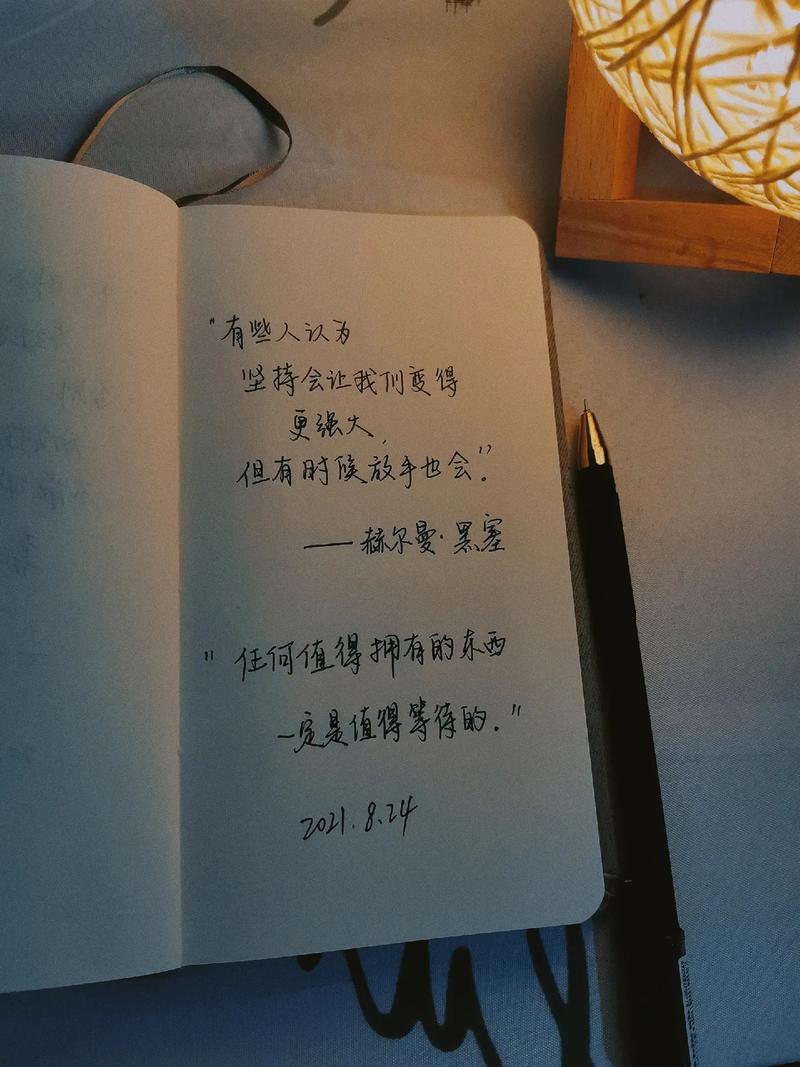 "有些人认为
坚持会让我们变得
更强大,
但有时候放手也会".
——赫尔曼·黑塞
"任何值得拥有的东西
一定是值得等待的."
2021.8.24